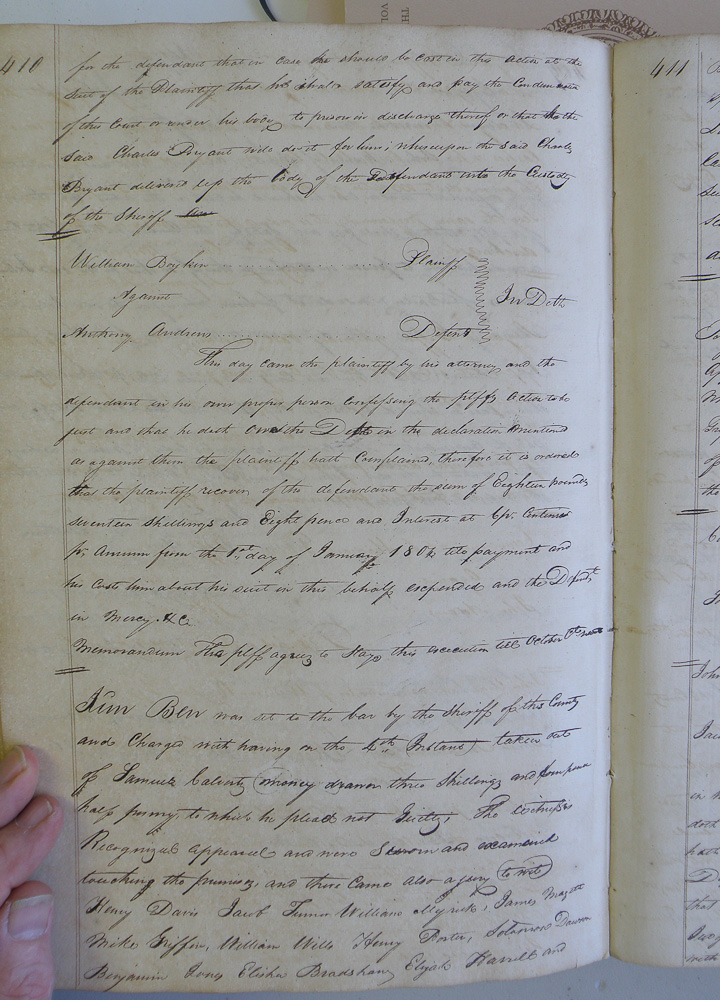 TH
VOL
410
for the defendant that in case he should be cast in this action at the
suit of the Plaintiff that he shall satisfy and pay the Condemnation
of this Court or render his body to prison in discharge thereof or that he the
said Charles Bryant will do it for him; whereupon the said Charles
Bryant delivered up the body of the Defendant into the Custody
of the Sheriff
William Boykin Plaintiff
Against In Debt
Anthony Andrews Defent
This day came the plaintiff by his attorney and the
defendant in his own proper person confessing the pltffs action to be
just and that he doth owe the Debt in the declaration mentioned
as against him the plaintiff hath Complained, therefore it is ordered
that the plaintiff recover of the defendant the sum of Eighteen pounds
seventeen shillings and Eight pence and Interest at 6 pr. Centum
pr. Annum from the 1st day of January till payment and
his costs him about his suit in this behalf expended and the Defendt
in Mercy &c
Memorandum This pltff agrees to Stay this execution till October
Ben was set to the bar by the Sheriff of this County
and Charged with having on the 4th Instant taken out
of Samuel Calverts money drawer three Shillings and four pence
half penny, to which he plead not Guilty. The witnesses
Recognized appeared and were Sworn and examined
touching the premises, and there Came also a jury to wit
Henry Davis Jacob Turner William Myrick, James
Mike Griffen, William Wills Henry Porter, Solomon Dawson
Benjamin Jones Elisha Bradshaw, Elijah Harrell and
411